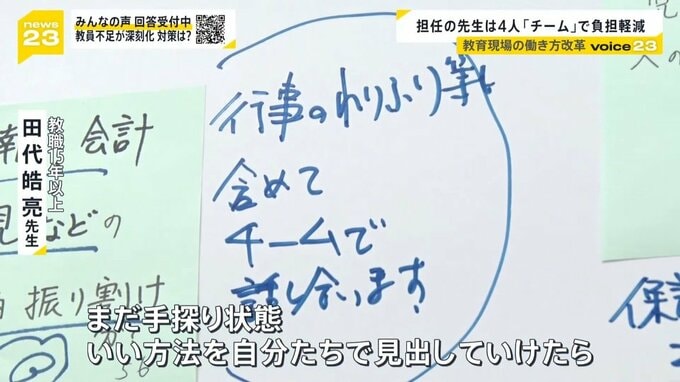 news
23
みんなの声 回答受付中
教員不足が深刻化 対策は?
担任の先生は4人「チーム」で負担軽減
教育現場の働き方改革 voice23
教職15年以上
田代皓亮先生
会計
などの
振り割け
行事のわりふり等
含めて
チームで
話し合います
まだ手探り状態
いい方法を自分たちで見出していけたら